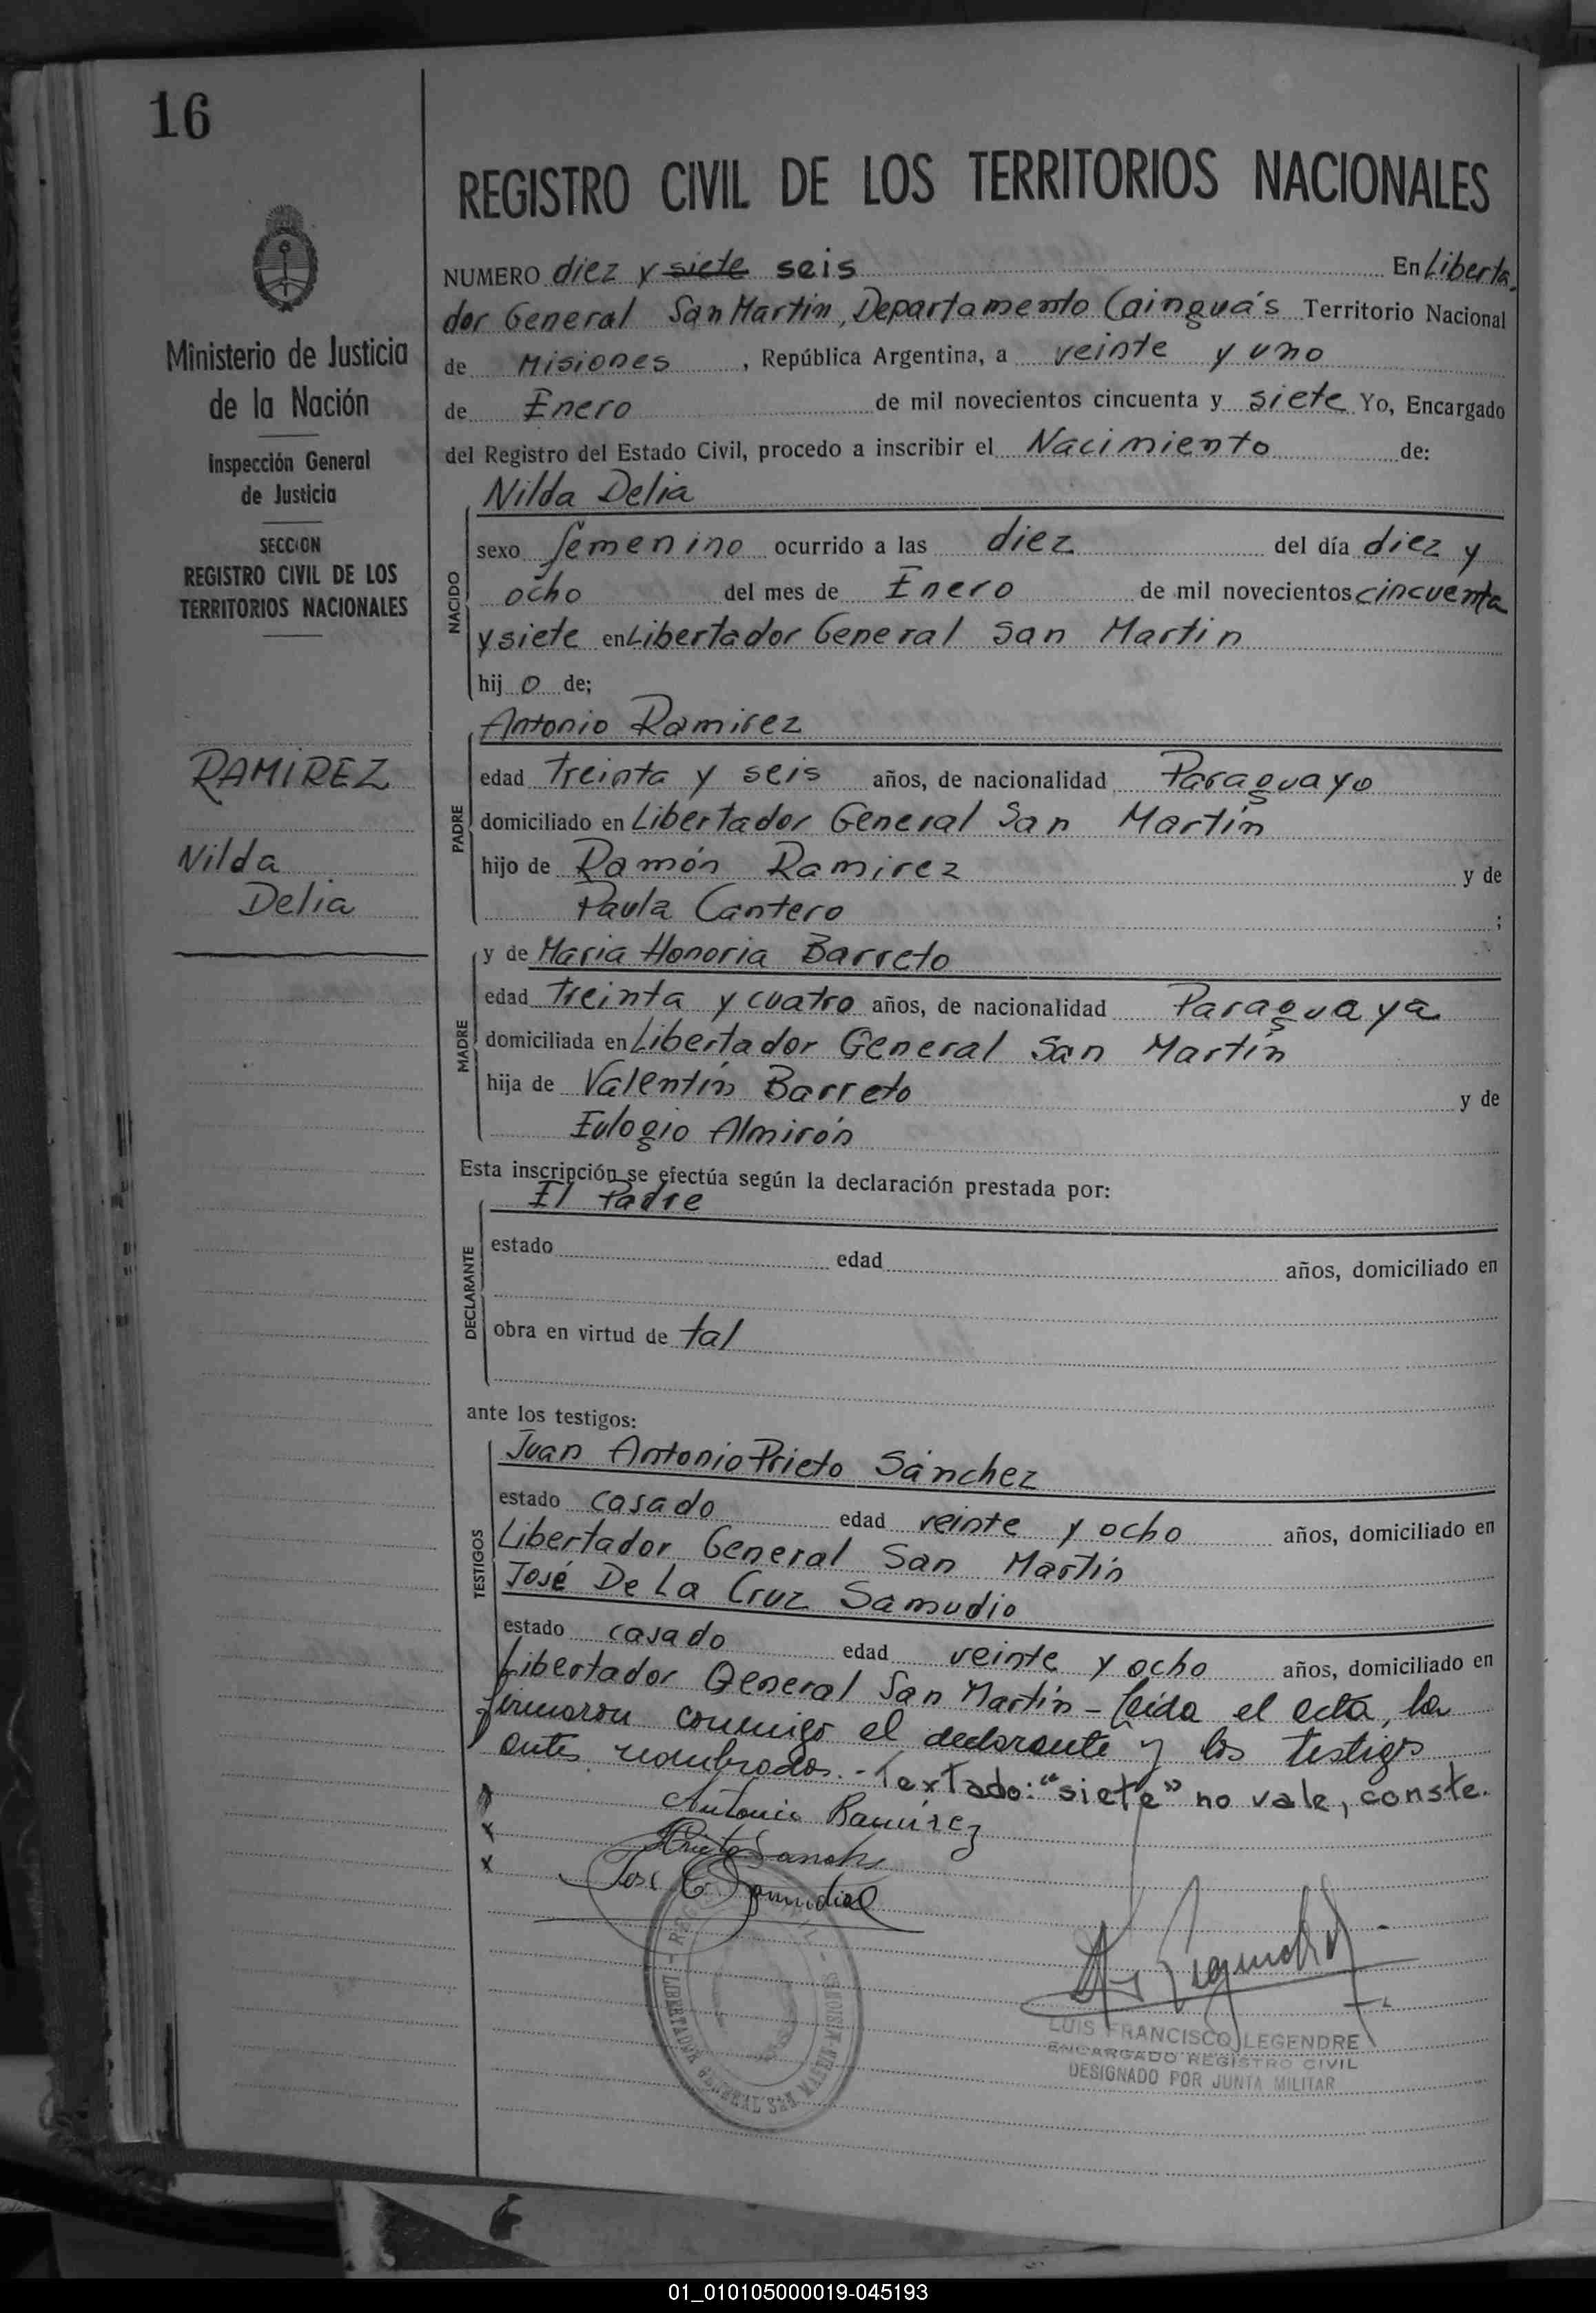 16
Ministerio de Justicia
de la Nación
Inspección General
de Justicia
SECCION
REGISTRO CIVIL DE LOS
TERRITORIOS NACIONALES
RAMIREZ
Nilda
Delia
REGISTRO CIVIL DE LOS TERRITORIOS NACIONALES
NUMERO diez y siete seis En Liberta.
dor General San Martín, Departamento Cainguás Territorio Nacional
de Misiones, República Argentina, a veinte y uno
de Enero de mil novecientos cincuenta y siete Yo, Encargado
del Registro del Estado Civil, procedo a inscribir el Nacimiento de:
NACIDO
Nilda Delia
sexo femenino ocurrido a las diez del día diez y
ocho del mes de Enero de mil novecientos cincuenta
y siete en Libertador General San Martin
hij o de;
PADRE
Antonio Ramirez
edad treinta y seis años, de nacionalidad Paraguayo
domiciliado en Libertador General San Martín
hijo de Ramón Ramirez y de
Paula Cantero ;
MADRE
y de Maria Honoria Barreto
edad treinta y cuatro años, de nacionalidad Paraguaya
domiciliada en Libertador General San Martín
hija de Valentín Barreto y de
Eulogio Almirón
Esta inscripción se efectúa según la declaración prestada por:
DECLARANTE
El Padre
estado edad años, domiciliado en
obra en virtud de tal
ante los testigos:
TESTIGOS
Juan Antonio Prieto Sánchez
estado casado edad veinte y ocho años, domiciliado en
Libertador General San Martín
José De La Cruz Samudio
estado casado edad veinte y ocho años, domiciliado en
Libertador General San Martín - Leida el acta, la
firmaron conmigo el declarante y los testigos
antes nombrados. - Textado: "siete" no vale, conste.
Antonio Ramirez
x
x
Jose C Samudio
LIBERTADOR GENERAL SAN MARTIN MISIONES
LUIS FRANCISCO LEGENDRE
ENCARGADO REGISTRO CIVIL
DESIGNADO POR JUNTA MILITAR
01_010105000019-045193